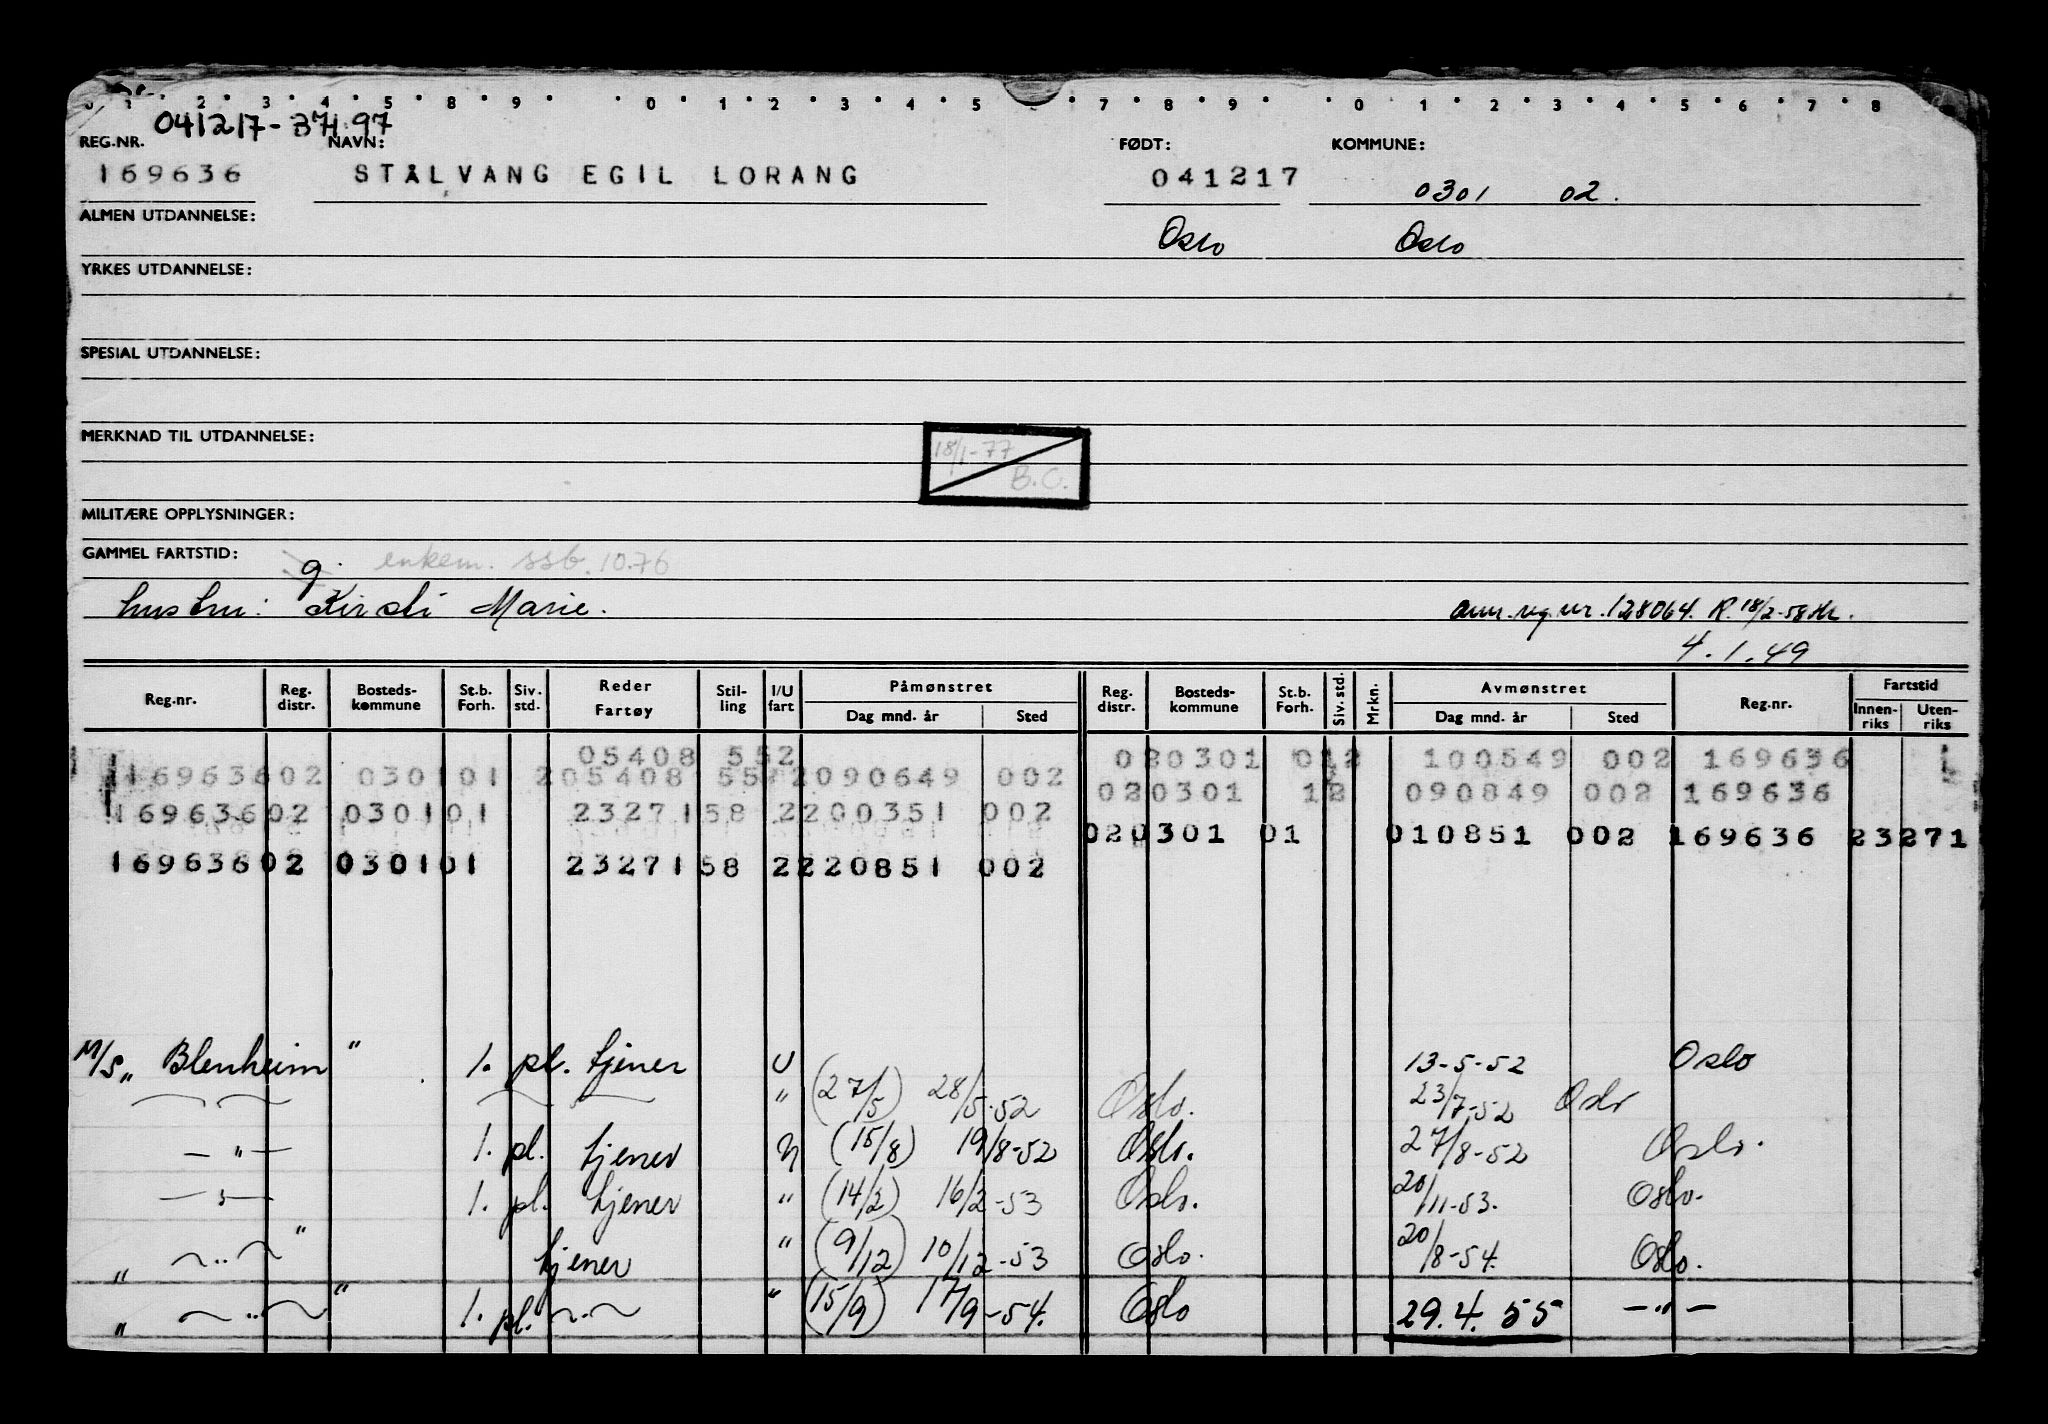 1 2 3 4 5 8 9 0 1 2 3 4 5 7 8 9 0 1 2 3 4 5 6 7 8
041217-
REG.NR. NAVN: FØDT: KOMMUNE:
169636 STÅLVANG EGIL LORANG 041217 0301 02.
ALMEN UTDANNELSE: Oslo Oslo
YRKES UTDANNELSE:
SPESIAL UTDANNELSE:
MERKNAD TIL UTDANNELSE:
18/1-77
B.C.
MILITÆRE OPPLYSNINGER:
GAMMEL FARTSTID: g. enkem. ssb. 10.76
hustru: Kirsti Marie. ann. reg. nr. 128064. R. 18/2-58
4.1.49
Reg.nr. Reg. distr. Bosteds-kommune St.b. Forh. Siv. std. Reder Fartøy Stil-ling I/U fart Påmønstret Dag mnd. år Sted Reg. distr. Bosteds-kommune St.b. Forh. Siv. std. Mrkn. Avmønstret Dag mnd. år Sted Reg.nr. Fartstid Innen-riks Uten-riks
05408 552 020301 012 100549 002 169636
169636 02 0301 01 2 05408 552 2 090649 002 020301 12 090849 002 169636
169636 02 0301 01 23271 58 2 200351 002 020301 01 010851 002 169636 23271
169636 02 0301 01 23271 58 2 220851 002
M/S „ Blenheim " 1. pl. tjener U 13-5-52 Oslo
" (27/5) 28/5-52 Oslo. 23/7-52 Oslo
— " — 1. pl. tjener U (15/8) 19/8-52 Oslo. 27/8-52 Oslo.
— " — 1. pl. tjener " (14/2) 16/2-53 Oslo. 20/11-53. Oslo.
„ — " — " tjener " (9/12) 10/12-53 Oslo. 20/8-54. Oslo.
„ — " — " 1. pl. — " — " (15/9) 17/9-54. Oslo 29.4.55 — " —